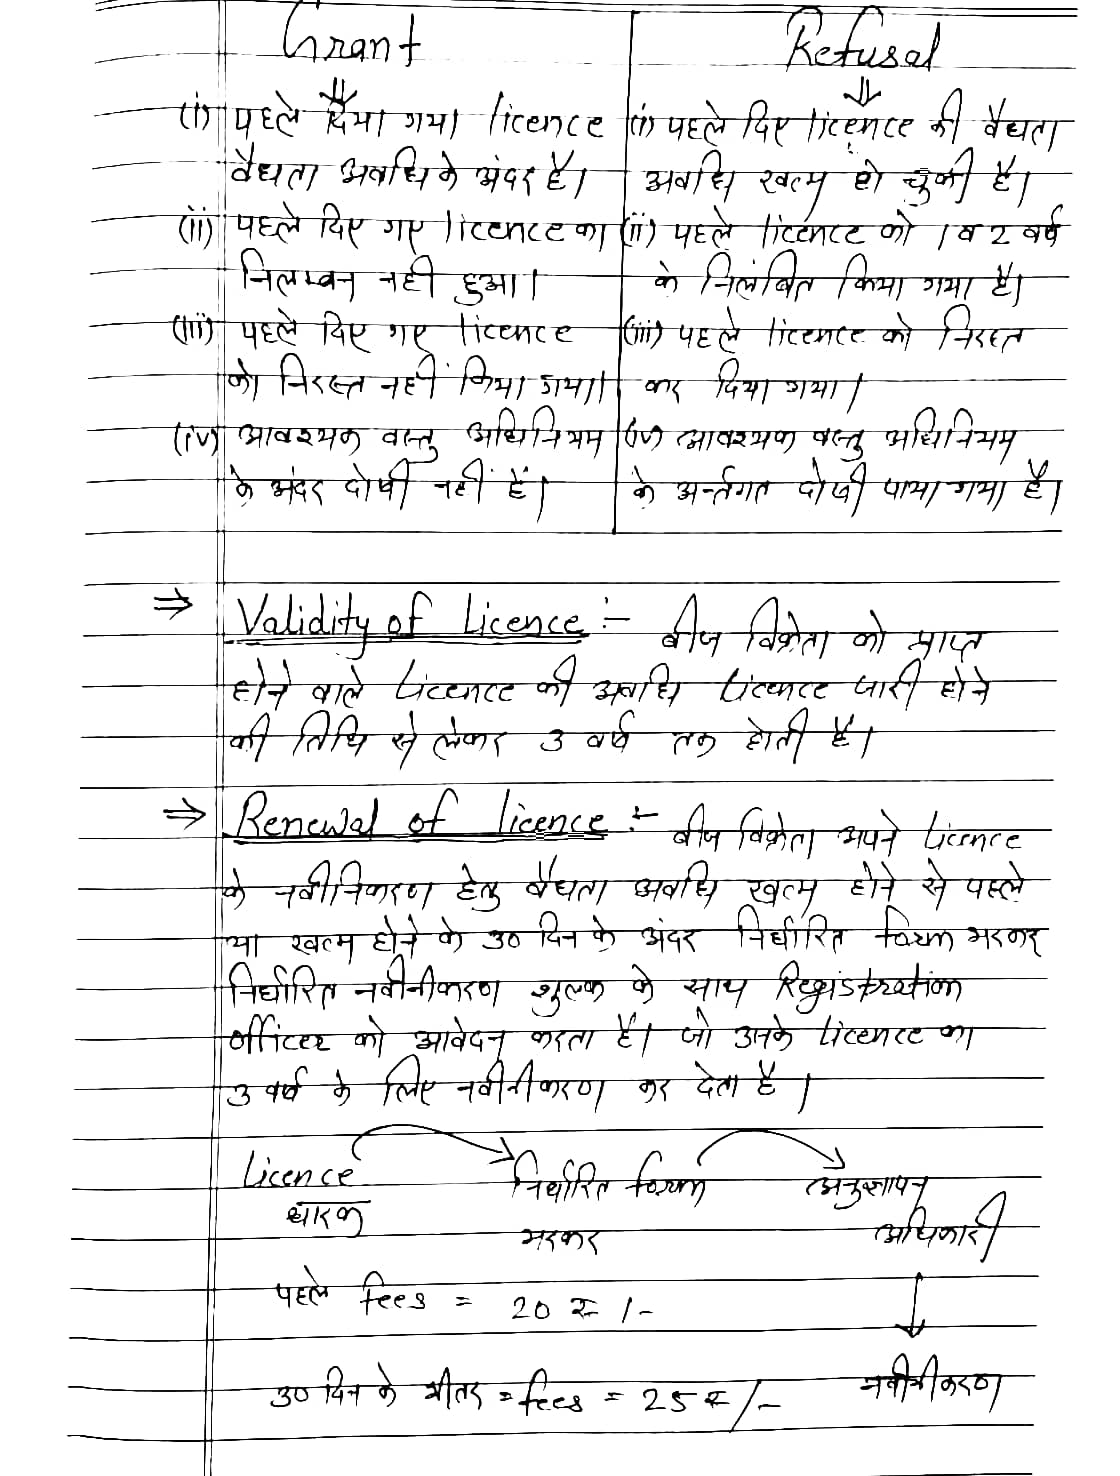 Grant
Refusal
(i) पहले दिया गया licence
वैधता अवधि के अंदर है।
(ii) पहले दिए गए licence का
निलम्बन नहीं हुआ।
(iii) पहले दिए गए licence
को निरस्त नहीं किया गया।
(iv) आवश्यक वस्तु अधिनियम
के अंदर दोषी नहीं हैं।
(i) पहले दिए licence की वैधता
अवधि खत्म हो चुकी है।
(ii) पहले licence को 1 व 2 वर्ष
के निलंबित किया गया है।
(iii) पहले licence को निरस्त
कर दिया गया।
(iv) आवश्यक वस्तु अधिनियम
के अर्न्तगत दोषी पाया गया है।
⇒ Validity of Licence :- बीज विक्रेता को प्राप्त
होने वाले Licence की अवधि Licence जारी होने
की तिथि से लेकर 3 वर्ष तक होती है।
⇒ Renewal of licence :- बीज विक्रेता अपने Licence
के नवीनिकरण हेतु वैधता अवधि खत्म होने से पहले
या खत्म होने के 30 दिन के अंदर निर्धारित form भरकर
निर्धारित नवीनीकरण शुल्क के साथ Registration
officer को आवेदन करता है। जो उनके licence का
3 वर्ष के लिए नवीनीकरण कर देता है।
Licence → निर्धारित form → अनुज्ञापन
धारक भरकर अधिकारी
पहले fees = 20 ₹ /-
↓
30 दिन के भीतर = fees = 25 ₹ /- नवीनीकरण